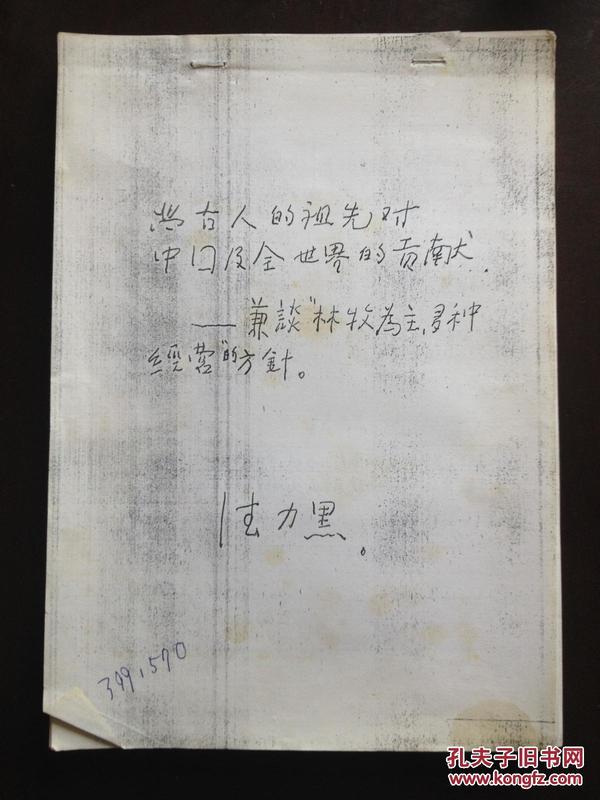 古人的祖先对
中囗及全世界的贡献.
——兼談“林牧为主,多种
經营”的方針。
力黑。
399,570
孔夫子旧书网
www.kongfz.com